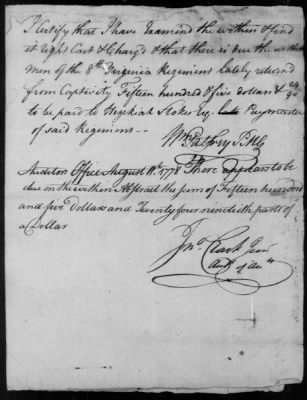 I Certify that I have Examind the within & find
it right Cast & Charg'd & that there is due the within
men of the 8th Virginia Regiment lately returnd
from Captivity Fifteen hundred & five dollars & 24/90
to be paid to Hezekiah Stokes Esq. late Paymaster
of said Regiment
Wm Palfrey P. M. G.
Auditors Office August 11th 1778 There appears to be
due on the within Abstract the sum of Fifteen hundred
and five Dollars and Twenty four ninetieth parts of
a Dollar
Jno. Clark Junr